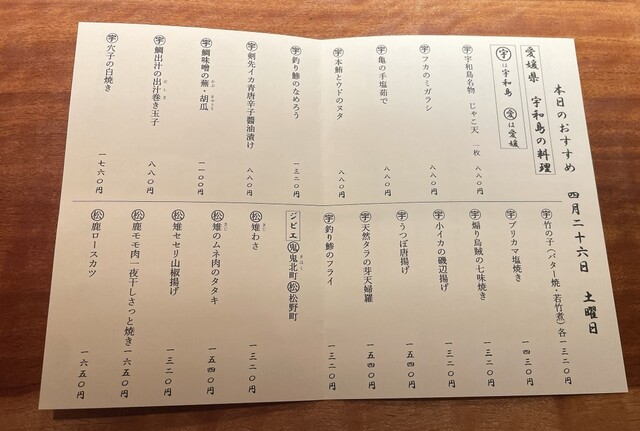 本日のおすすめ 四月二十六日 土曜日
愛媛県 宇和島の料理
宇は宇和島 愛は愛媛
宇 宇和島名物 じゃこ天 一枚 八八〇円
宇 フカのミガラシ 八八〇円
宇 亀の手塩茹で 八八〇円
宇 本鮪とウドのヌタ 八八〇円
宇 釣り鯵のなめろう 一三二〇円
宇 剣先イカ青唐辛子醬油漬け 八八〇円
宇 鯛味噌の蕪・胡瓜 一一〇〇円
宇 鯛出汁の出汁巻き玉子 八八〇円
宇 穴子の白焼き 一七六〇円
宇 竹の子(バター焼・若竹煮)各一三二〇円
宇 ブリカマ塩焼き 一四三〇円
宇 煽り烏賊の七味焼き 一三二〇円
宇 小イカの磯辺揚げ 一三二〇円
宇 うつぼ唐揚げ 一五四〇円
宇 天然タラの芽天婦羅 一五四〇円
宇 釣り鯵のフライ 一三二〇円
ジビエ 鬼 鬼北町 松 松野町
松 雉わさ 一三二〇円
松 雉のムネ肉のタタキ 一五四〇円
松 雉セセリ山椒揚げ 一三二〇円
松 鹿モモ肉一夜干しさっと焼き 一六五〇円
松 鹿ロースカツ 一六五〇円